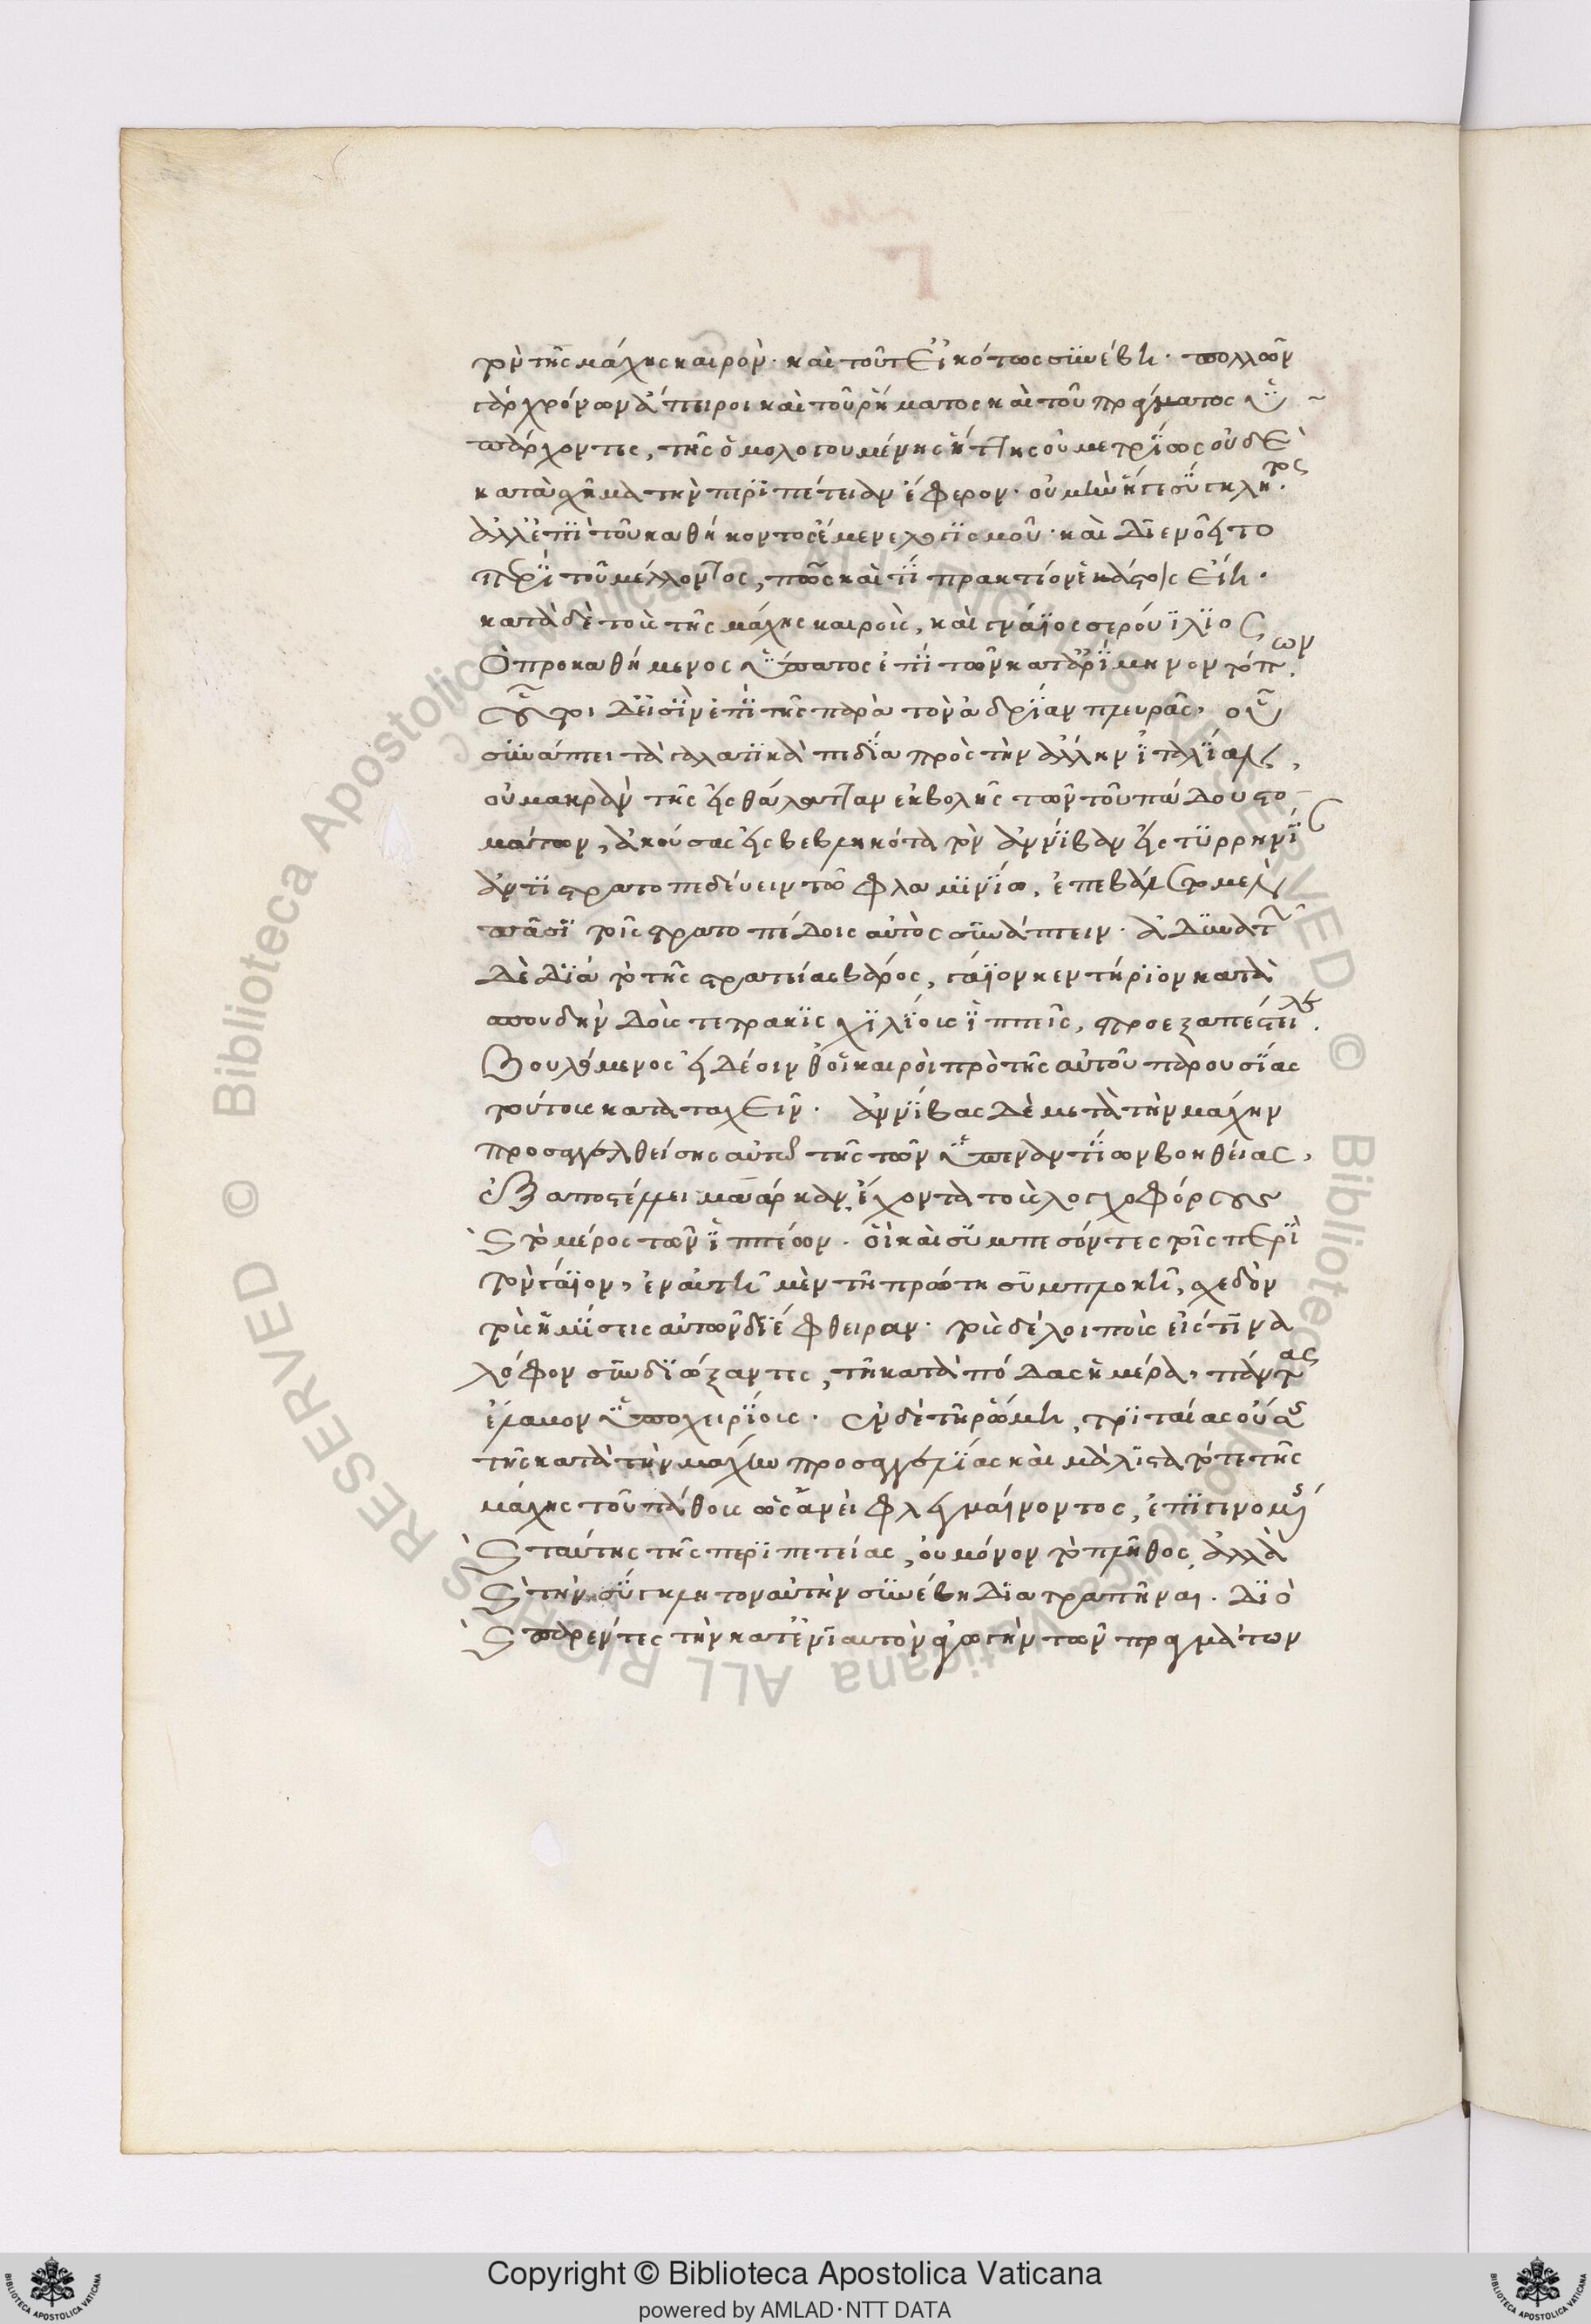 τὸν τῆς μάχης καιρόν· καὶ τοῦτ εἰκότως συνέβη· πολλῶν
γὰρ χρόνων ἄπειροι καὶ τοῦ ῥήματος καὶ τοῦ πράγματος ὑ
πάρχοντες, τῆς ὁμολογουμένης ἥττης οὐ μετρίως οὐδὲ
κατὰ σχῆμα τὴν περιπέτειαν ἔφερον· οὐ μὴν ἥ γε σύγκλητος.
ἀλλ ἐπὶ τοῦ καθήκοντος ἔμενε λογισμοῦ· καὶ διενοεῖτο
περὶ τοῦ μέλλοντος, πῶς καὶ τί πρακτέον ἑκάστοις εἴη.
κατὰ δὲ τοὺς τῆς μάχης καιροὺς, καὶ γνάϊος σερούϊλιος
ὁ προκαθήμενος ὕπατος ἐπὶ τῶν κατ ἀρίμηνον τόπων.
οὗτοι δ εἰσὶν ἐπὶ τῆς παρὰ τὸν ἀδρίαν πλευρᾶς, οὗ
συνάπτει τὰ γαλατικὰ πεδία πρὸς τὴν ἄλλην ἰταλίαν,
οὐ μακρὰν τῆς εἰς θάλατταν ἐκβολῆς τῶν τοῦ πάδου στο
μάτων, ἀκούσας εἰσβεβληκότα τὸν ἀννίβαν εἰς τυρρηνίαν
ἀντιστρατοπεδεύειν τῷ φλαμινίῳ, ἐπεβάλετο μὲν
πᾶσι τοῖς στρατοπέδοις αὐτὸς συνάπτειν· ἀδυνατῶν
δὲ διὰ τὸ τῆς στρατείας βάρος, γάϊον κεντήριον κατὰ
σπουδὴν δοὺς τετρακισχιλίους ἱππεῖς, προεξαπέστειλε.
βουλόμενος εἰ δέοιν οἱ καιροὶ πρὸ τῆς αὐτοῦ παρουσίας
τούτους καταταχεῖν. ἀννίβας δὲ μετὰ τὴν μάχην
προσαγγελθείσης αὐτῷ τῆς τῶν ὑπεναντίων βοηθείας,
ἐξαποστέλλει μαάρκαν, ἔχοντα τοὺς λογχοφόρους
καὶ τὸ μέρος τῶν ἱππέων. οἳ καὶ συμπεσόντες τοῖς περὶ
τὸν γάϊον, ἐν αὐτῇ μὲν τῇ πρώτῃ συμπλοκῇ, σχεδὸν
τοὺς ἡμίσεις αὐτῶν διέφθειραν· τοὺς δὲ λοιποὺς εἴς τινα
λόφον συνδιώξαντες, τῇ κατὰ πόδας ἡμέρᾳ, πάντας
ἔλαβον ὑποχειρίους. ἐν δὲ τῇ ῥώμῃ, τριταίας οὔσης
τῆς κατὰ τὴν μάχην προσαγγελίας καὶ μάλιστα τότε τῆς
μάχης τοῦ πάθους ὡς ἂν εἰ φλεγμαίνοντος, ἐπιγενομένης
καὶ ταύτης τῆς περιπετείας, οὐ μόνον τὸ πλῆθος, ἀλλὰ
καὶ τὴν σύγκλητον αὐτὴν συνέβη διατραπῆναι. διὸ
καὶ παρέντες τὴν κατ ἐνιαυτὸν ἀγωγὴν τῶν πραγμάτων